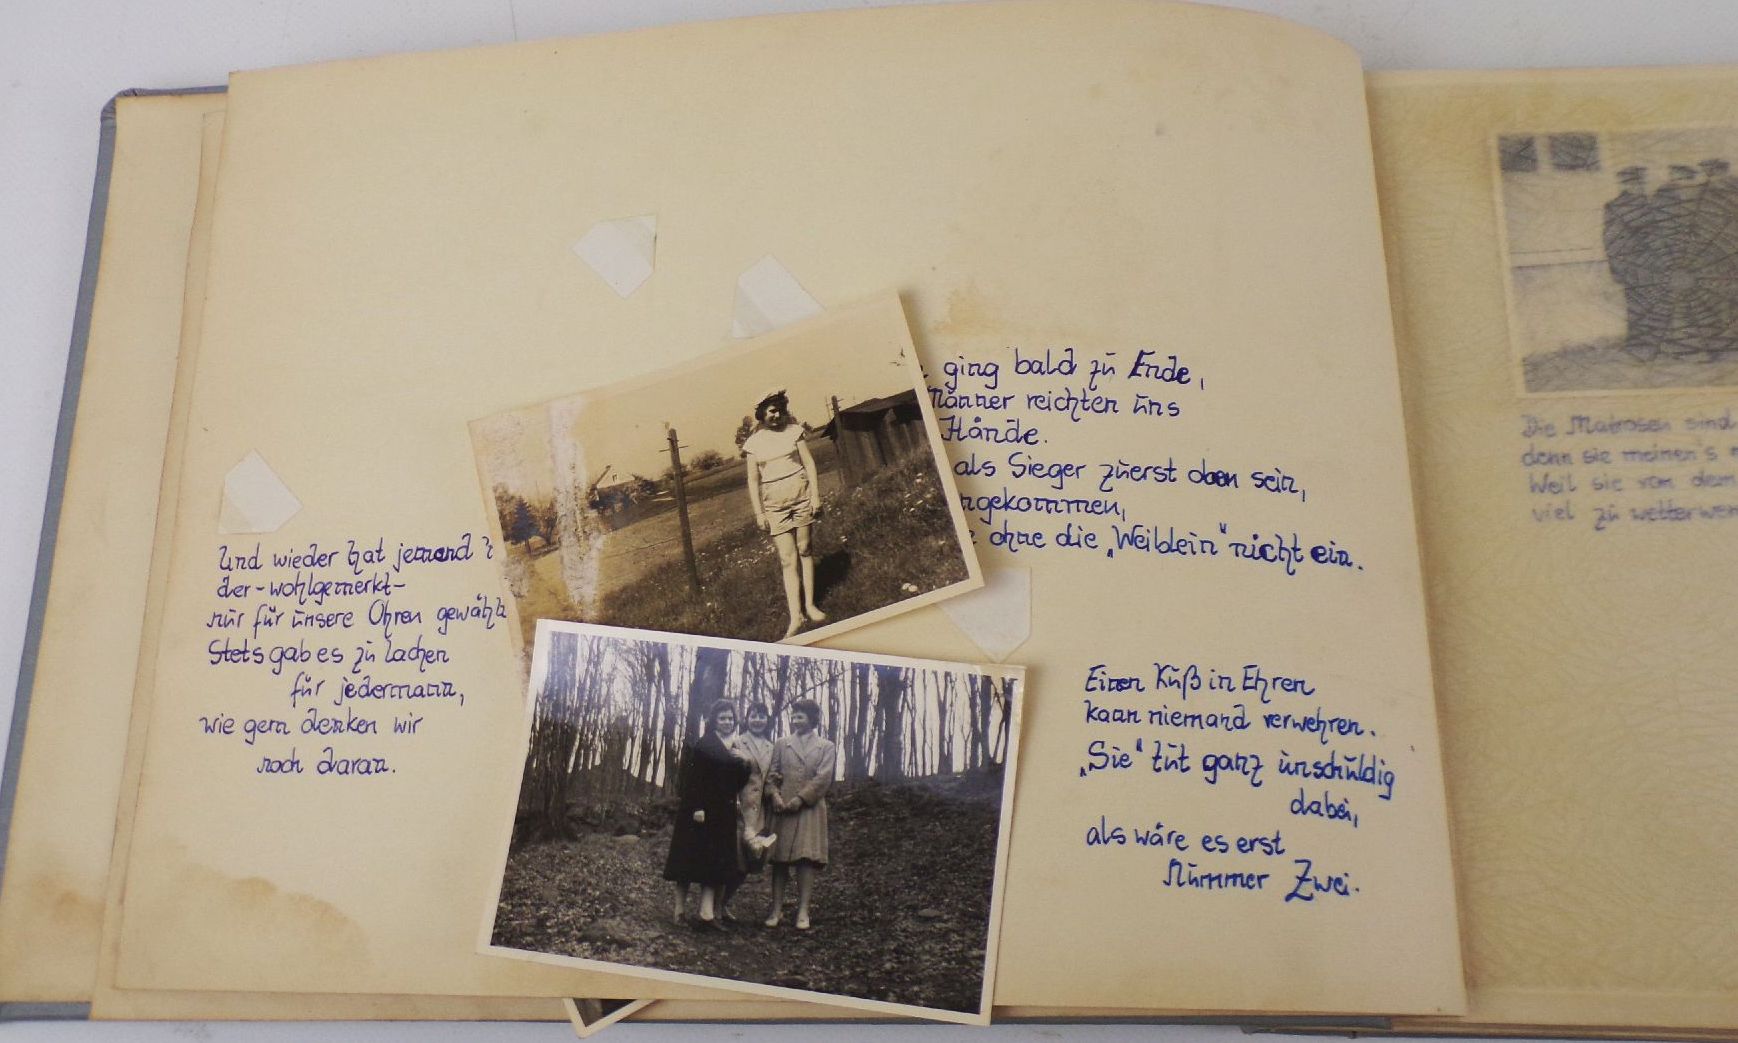 Und wieder hat jemand
der-wohlgemerkt-
nur für unsere Ohren gewählt
Stets gab es zu lachen
für jedermann,
wie gern denken wir
noch daran.
ging bald zu Ende,
Männer reichten uns
Hände.
als Sieger zuerst oben sein,
ngekommen,
ohne die „Weiblein" nicht ein.
Einen Kuß in Ehren
kann niemand verwehren.
„Sie" tut ganz unschuldig
dabei,
als wäre es erst
Nummer Zwei.
Die Matrosen sind
denn sie meinen's
Weil sie von dem
viel zu wetterwen